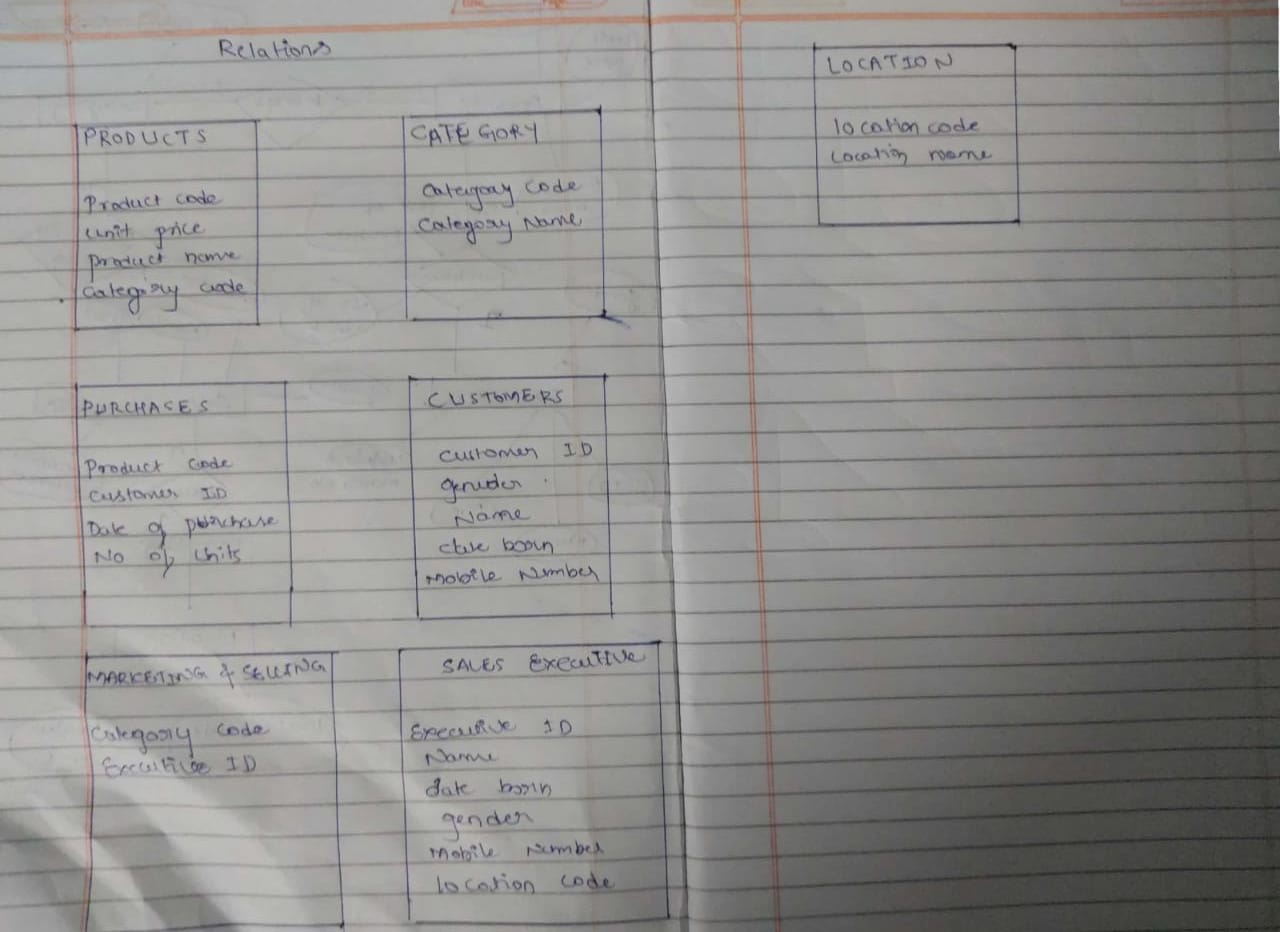 Relations
PRODUCTS
Product code
unit price
product name
Category code
CATEGORY
Category Code
Category Name
LOCATION
location code
Location name
PURCHASES
Product Code
Customer ID
Date of purchase
No of Units
CUSTOMERS
customer ID
gender
Name
date born
Mobile Number
MARKETING & SELLING
Category Code
Executive ID
SALES EXECUTIVE
Executive ID
Name
date born
gender
Mobile Number
location code